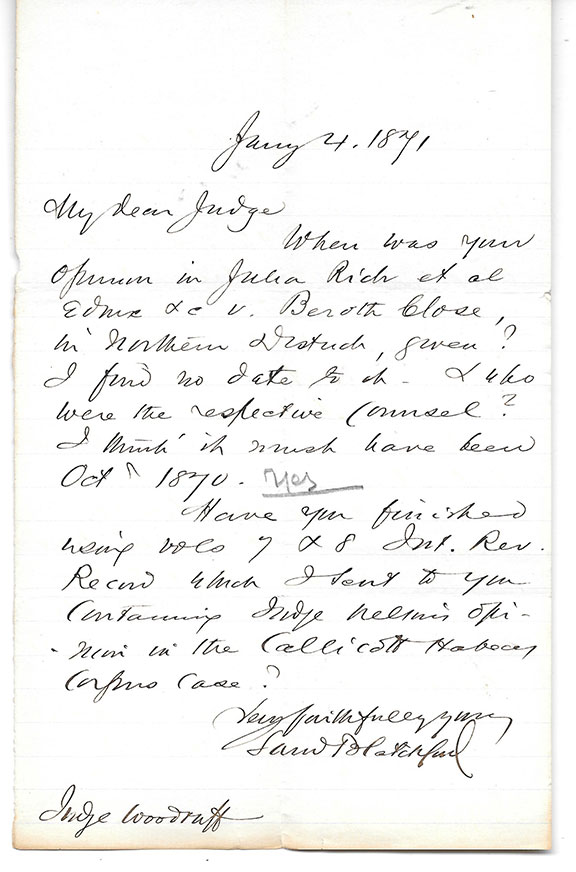 Jany 4. 1871
My dear Judge
When was your
opinion in Julia Rich et al
Edmx &c v. Beroth Close,
in Northern District, given?
I find no date to it - & who
were the respective counsel?
I think it must have been
Octr 1870. Yes
Have you finished
using vols 7 & 8 Int. Rev.
Record which I sent to you
containing Judge Nelson's opi-
-nion in the Callicott Habeas
Corpus case?
Very faithfully yours
Saml Blatchford
Judge Woodruff